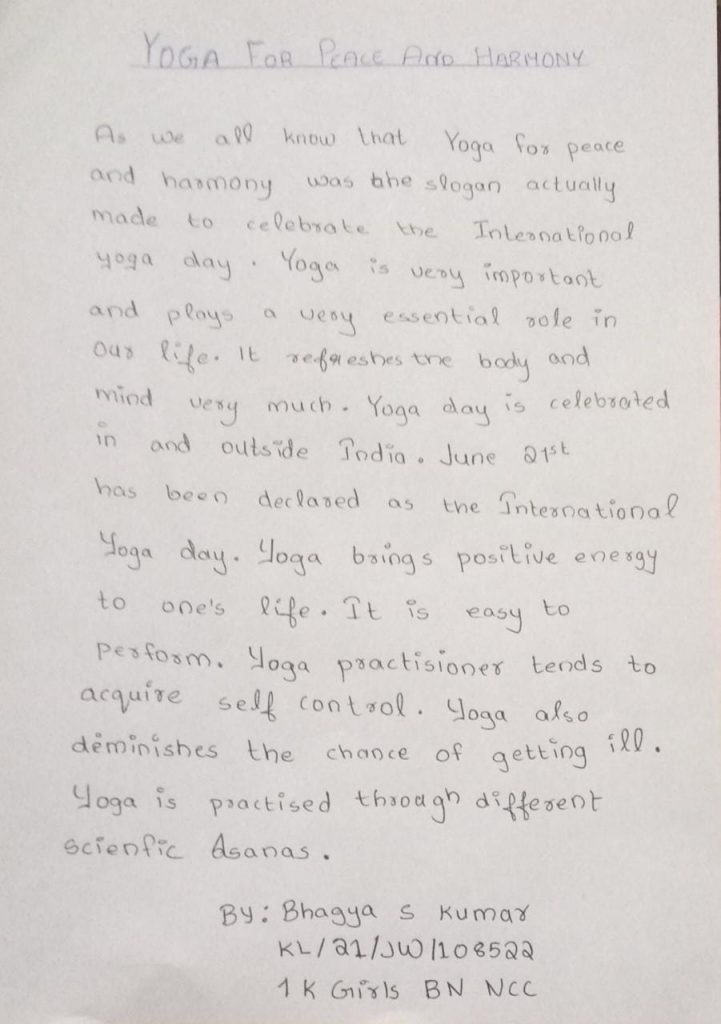 YOGA FOR PEACE AND HARMONY
As we all know that Yoga for peace
and harmony was the slogan actually
made to celebrate the International
yoga day. Yoga is very important
and plays a very essential role in
our life. It refreshes the body and
mind very much. Yoga day is celebrated
in and outside India. June 21st
has been declared as the International
Yoga day. Yoga brings positive energy
to one's life. It is easy to
perform. Yoga practisioner tends to
acquire self control. Yoga also
deminishes the chance of getting ill.
Yoga is practised through different
scienfic Asanas.
By: Bhagya S Kumar
KL/21/JW/108522
1 K Girls BN NCC